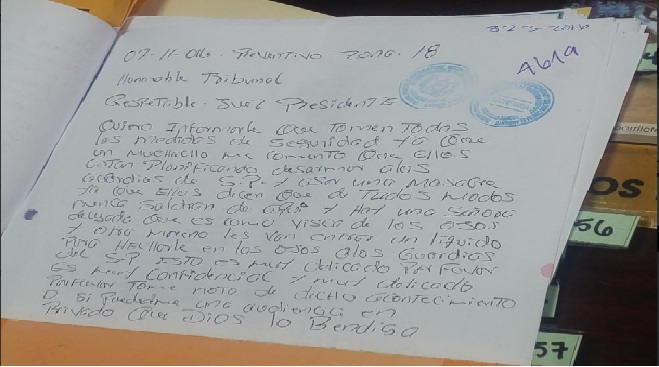 07-11-016. Preventivo Zona. 18
Honorable Tribunal
Respetible. Juez Presidente
Quiero Informarle Que Tomen Todas
las Medidas de Seguridad Ya Que
un MUCHACHO me Comento Que Ellos
estan Planificando desarmar a los
Guardias de S.P. Y aser una Masacre
Ya Que Ellos dicen Que de Todos Modos
nunca Saldran de aqui Y Hay una Señora
delgada Que es como visca de los OJOS
Y Otra Morena les van entrar un liquido
Para HecHarle en los OJOS alos Guardias
del S.P ESTO es muy delicado Por Favor
es muy Confidencial Y muy delicado
Porfavor Tome nota de dicHo acontecimiento
O si Puediera una audiencia en
Privado Que Dios lo Bendiga
A619
56
57
OS